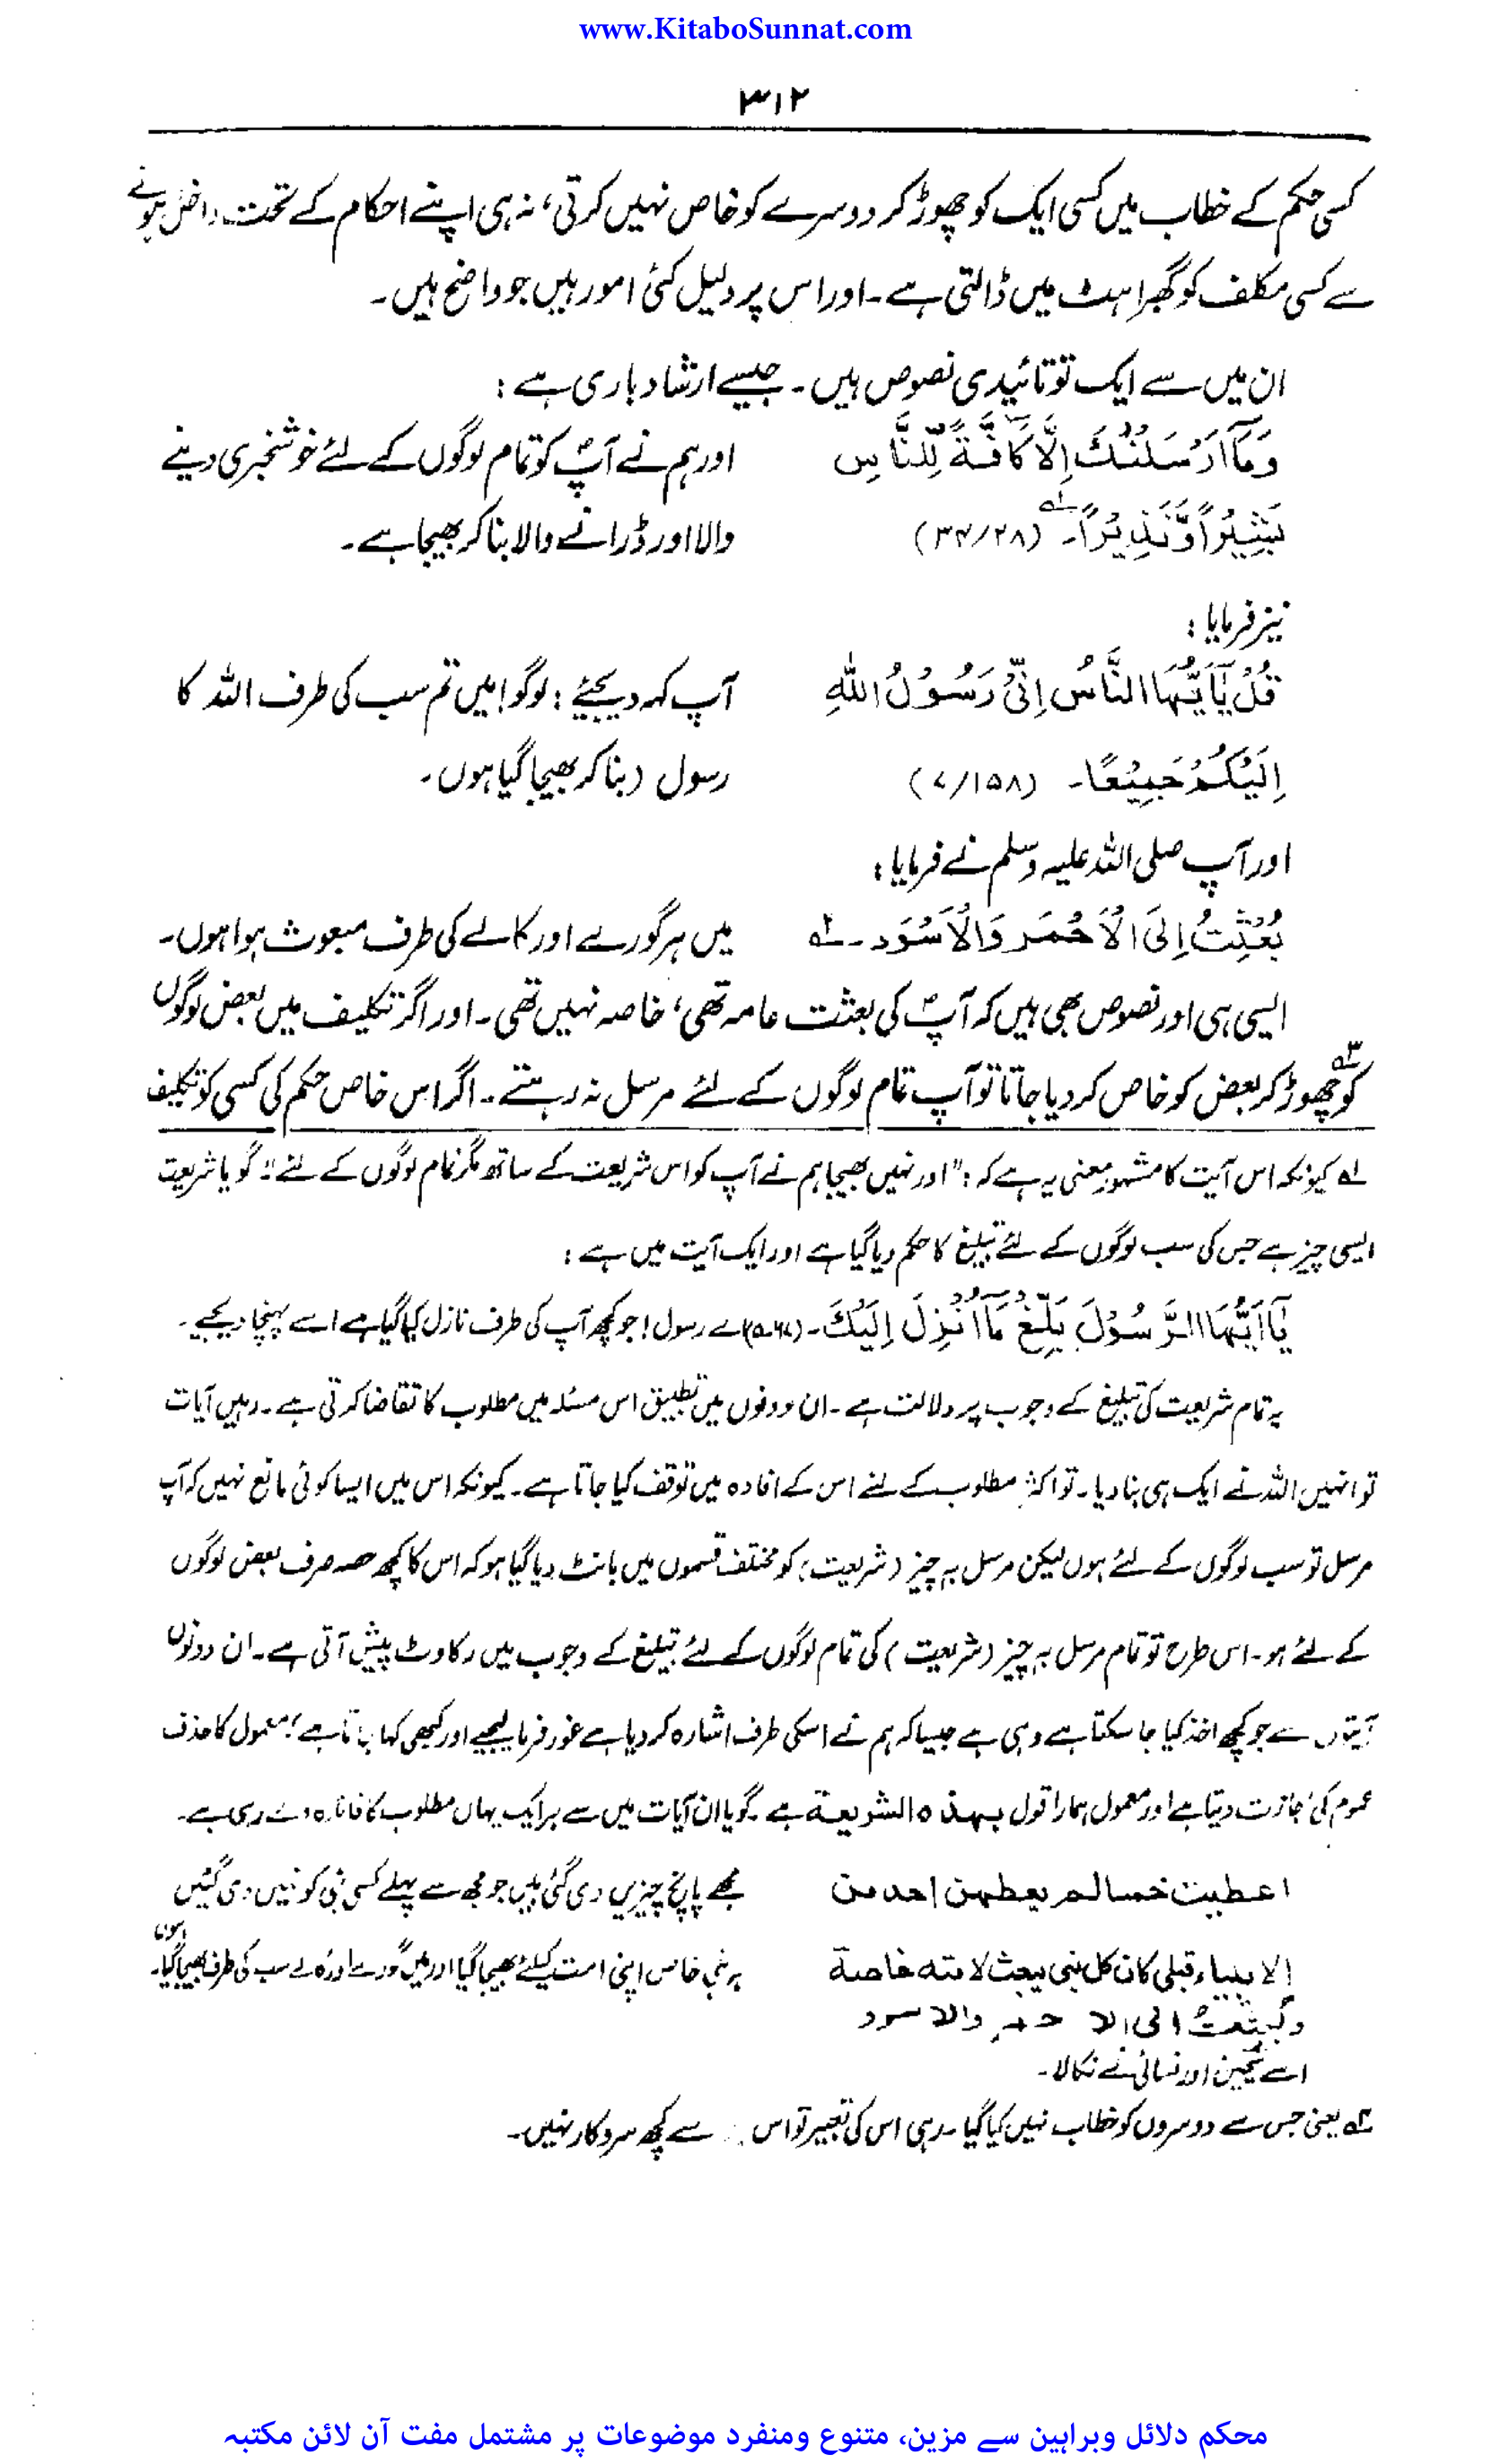 www.KitaboSunnat.com
۳۱۲
کسی حکم کے خطاب میں کسی ایک کو چھوڑ کر دوسرے کو خاص نہیں کرتی، نہ ہی اپنے احکام کے تحت داخل ہونے
سے کسی مکلف کو گھبراہٹ میں ڈالتی ہے۔ اور اس پر دلیل کئی امور ہیں جو واضح ہیں۔
ان میں سے ایک تو تائیدی نصوص ہیں۔ جیسے ارشاد باری ہے:
وَمَآ اَرْسَلْنٰكَ اِلَّا كَآفَّةً لِّلنَّاسِ اور ہم نے آپؐ کو تمام لوگوں کے لئے خوشخبری دینے
بَشِيْرًا وَّنَذِيْرًا۔ لہ (۳۴/۲۸) والا اور ڈرانے والا بنا کر بھیجا ہے۔
نیز فرمایا:
قُلْ يٰٓاَيُّهَا النَّاسُ اِنِّيْ رَسُوْلُ اللّٰهِ آپ کہہ دیجئے: لوگو! میں تم سب کی طرف اللہ کا
اِلَيْكُمْ جَمِيْعًا۔ (۷/۱۵۸) رسول (بنا کر بھیجا گیا ہوں۔
اور آپ صلی اللہ علیہ وسلم نے فرمایا:
بُعِثْتُ اِلَى الْاَحْمَرِ وَالْاَسْوَدِ۔ ۲ہ میں ہر گورے اور کالے کی طرف مبعوث ہوا ہوں۔
ایسی ہی اور نصوص بھی ہیں کہ آپؐ کی بعثت عامہ تھی، خاصہ نہیں تھی۔ اور اگر تکلیف میں بعض لوگوں
کو چھوڑ کر بعض کو خاص کر دیا جاتا تو آپ تمام لوگوں کے لئے مرسل نہ رہتے۔ اگر اس خاص حکم کی کسی کو تکلیف ۳ہ
لہ کیونکہ اس آیت کا مشہور معنی یہ ہے کہ: "اور نہیں بھیجا ہم نے آپ کو اس شریعت کے ساتھ مگر تمام لوگوں کے لئے" گویا شریعت
ایسی چیز ہے جس کی سب لوگوں کے لئے تبلیغ کا حکم دیا گیا ہے اور ایک آیت میں ہے:
يٰٓاَيُّهَا الرَّسُوْلُ بَلِّغْ مَآ اُنْزِلَ اِلَيْكَ۔ (۵۔۶۷) اے رسول! جو کچھ آپ کی طرف نازل کیا گیا ہے اسے پہنچا دیجیے۔
یہ تمام شریعت کی تبلیغ کے وجوب پر دلالت ہے۔ ان دونوں میں تطبیق اس مسئلہ میں مطلوب کا تقاضا کرتی ہے۔ رہیں آیات
تو انہیں اللہ نے ایک ہی بنا دیا۔ تو اکثر مطلوب کے لئے اس کے افادہ میں توقف کیا جاتا ہے۔ کیونکہ اس میں ایسا کوئی مانع نہیں کہ آپ
مرسل تو سب لوگوں کے لئے ہوں لیکن مرسل بہ چیز (شریعت) کو مختلف قسموں میں بانٹ دیا گیا ہو کہ اس کا کچھ حصہ صرف بعض لوگوں
کے لئے ہو۔ اس طرح تو تمام مرسل بہ چیز (شریعت) کی تمام لوگوں کے لئے تبلیغ کے وجوب میں رکاوٹ پیش آتی ہے۔ ان دونوں
آیتوں سے جو کچھ اخذ کیا جا سکتا ہے وہی ہے جیسا کہ ہم نے اسکی طرف اشارہ کر دیا ہے غور فرما لیجیے اور کبھی کہا جاتا ہے؛ معمول کا حذف
عموم کی اجازت دیتا ہے اور معمول ہمارا قول بهذه الشريعة ہے۔ گویا ان آیات میں سے ہر ایک یہاں مطلوب کا فائدہ دے رہی ہے۔
اعطيت خمسا لم يعطهن احد من مجھے پانچ چیزیں دی گئی ہیں جو مجھ سے پہلے کسی نبی کو نہیں دی گئیں
الانبياء قبلى كان كل نبى يبعث لامته خاصة ہر نبی خاص اپنی امت کیلئے بھیجا گیا اور میں گورے اور کالے سب کی طرف بھیجا گیا ہوں۔
وبُعثتُ الى الاحمر والاسود
اسے شیخین اور نسائی نے نکالا۔
۳ہ یعنی جس سے دوسروں کو خطاب نہیں کیا گیا۔ رہی اس کی تعبیر تو اس سے کچھ سروکار نہیں۔
محکم دلائل وبراہین سے مزین، متنوع ومنفرد موضوعات پر مشتمل مفت آن لائن مکتبہ